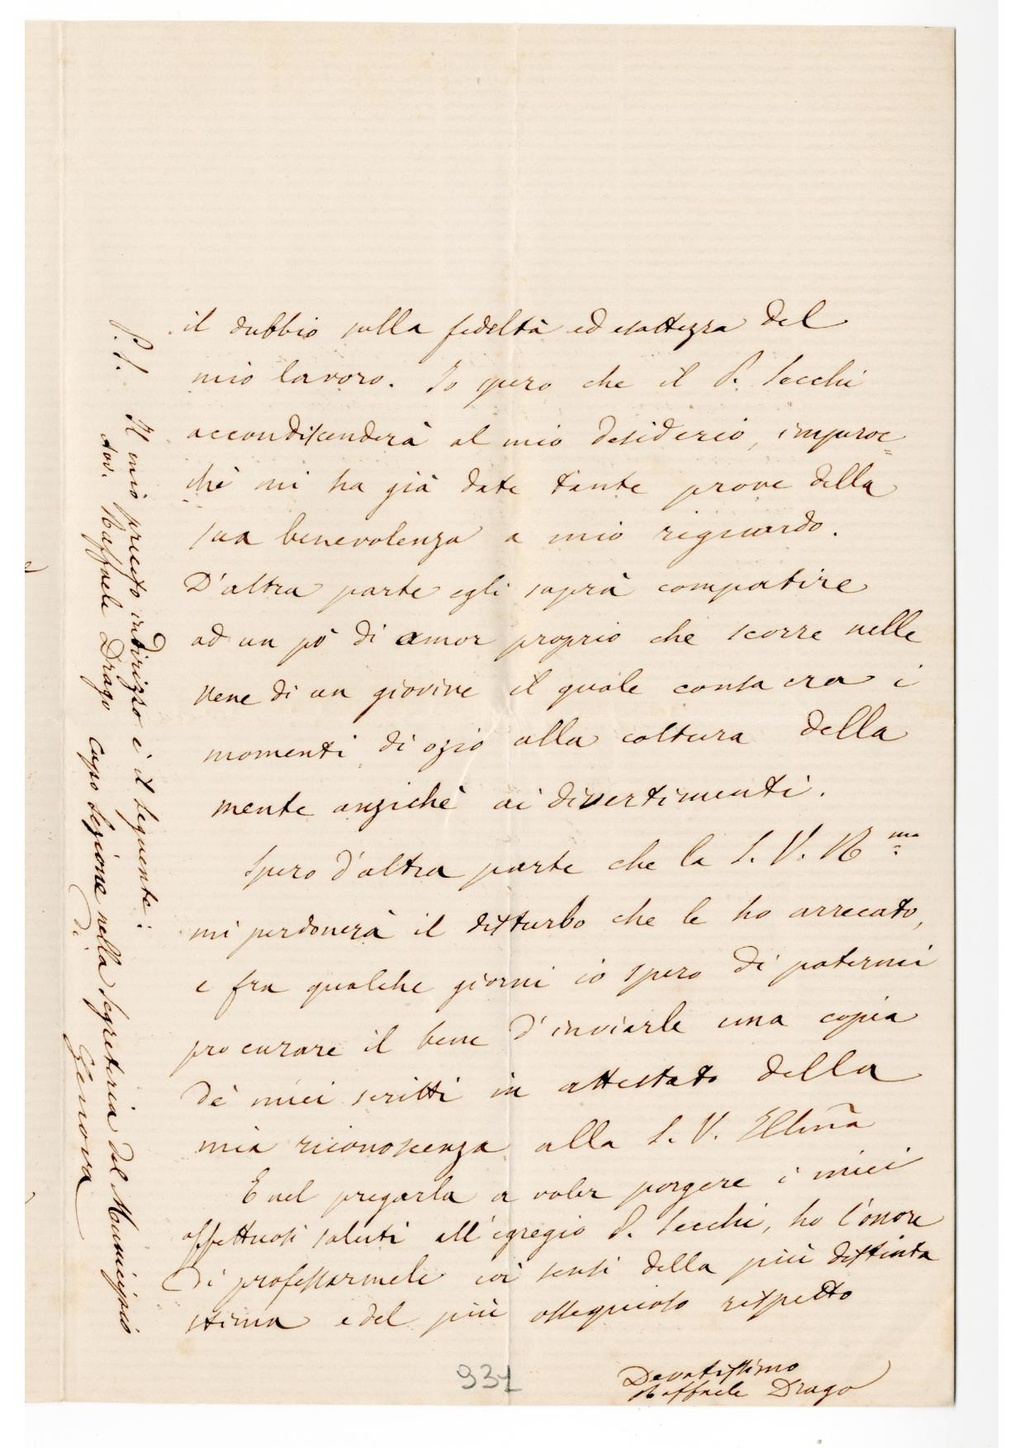 il dubbio sulla fedeltà ed esattezza del
mio lavoro. Io spero che il P. Secchi
accondiscenderà al mio desiderio, imperoc=
chè mi ha già date tante prove della
sua benevolenza a mio riguardo.
D'altra parte egli saprà compatire
ad un pò di amor proprio che scorre nelle
vene di un giovine il quale consacra i
momenti di ozio alla coltura della
mente anzichè ai divertimenti.
Spero d'altra parte che la S. V. R.ma
mi perdonerà il disturbo che le ho arrecato,
e fra qualche giorni io spero di potermi
procurare il bene d'inviarle una copia
de' miei scritti in attestato della
mia riconoscenza alla S. V. Ill̃ma
E nel pregarla a voler porgere i miei
affettuosi saluti all'egregio P. Secchi, ho l'onore
di professarmele coi sensi della più distinta
stima e del più ossequioso rispetto
Devotissimo
Raffaele Drago
931
P. S. Il mio preciso indirizzo è il seguente:
Avv. Raffaele Drago Capo Sezione nella Segreteria del Municipio
di
Genova